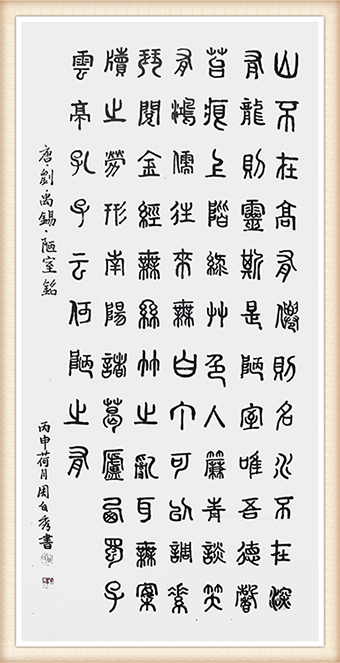 山不在高有僊則名水不在深
有龍則靈斯是陋室唯吾德馨
苔痕上階綠艸色入簾青談笑
有鴻儒往來無白丁可以調素
琴閱金經無絲竹之亂耳無案
牘之勞形南陽諸葛廬西蜀子
雲亭孔子云何陋之有
唐·劉禹錫·陋室銘
丙申荷月周秀書